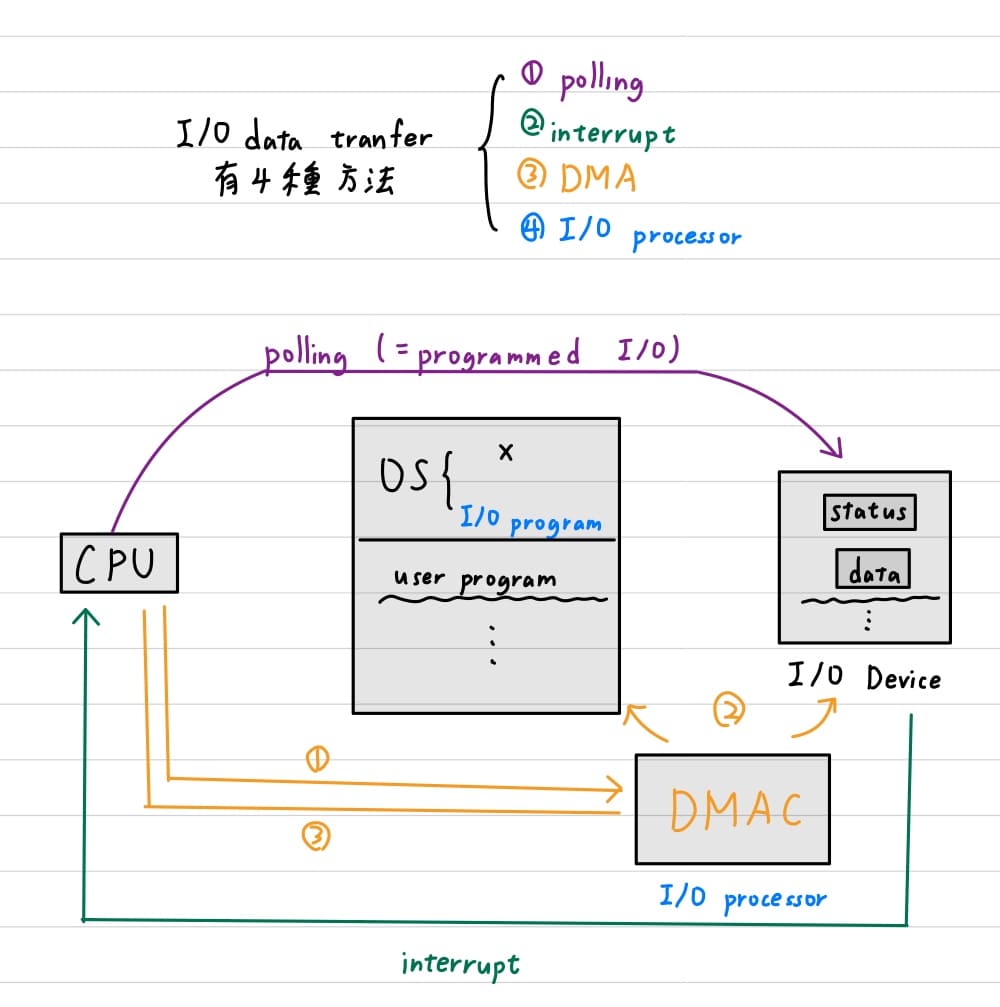 I/O data tranfer
有4種方法
① polling
② interrupt
③ DMA
④ I/O processor
polling (=programmed I/O)
OS{ x
I/O program
user program
⋮
CPU
status
data
⋮
I/O Device
②
①
③
DMAC
I/O processor
interrupt